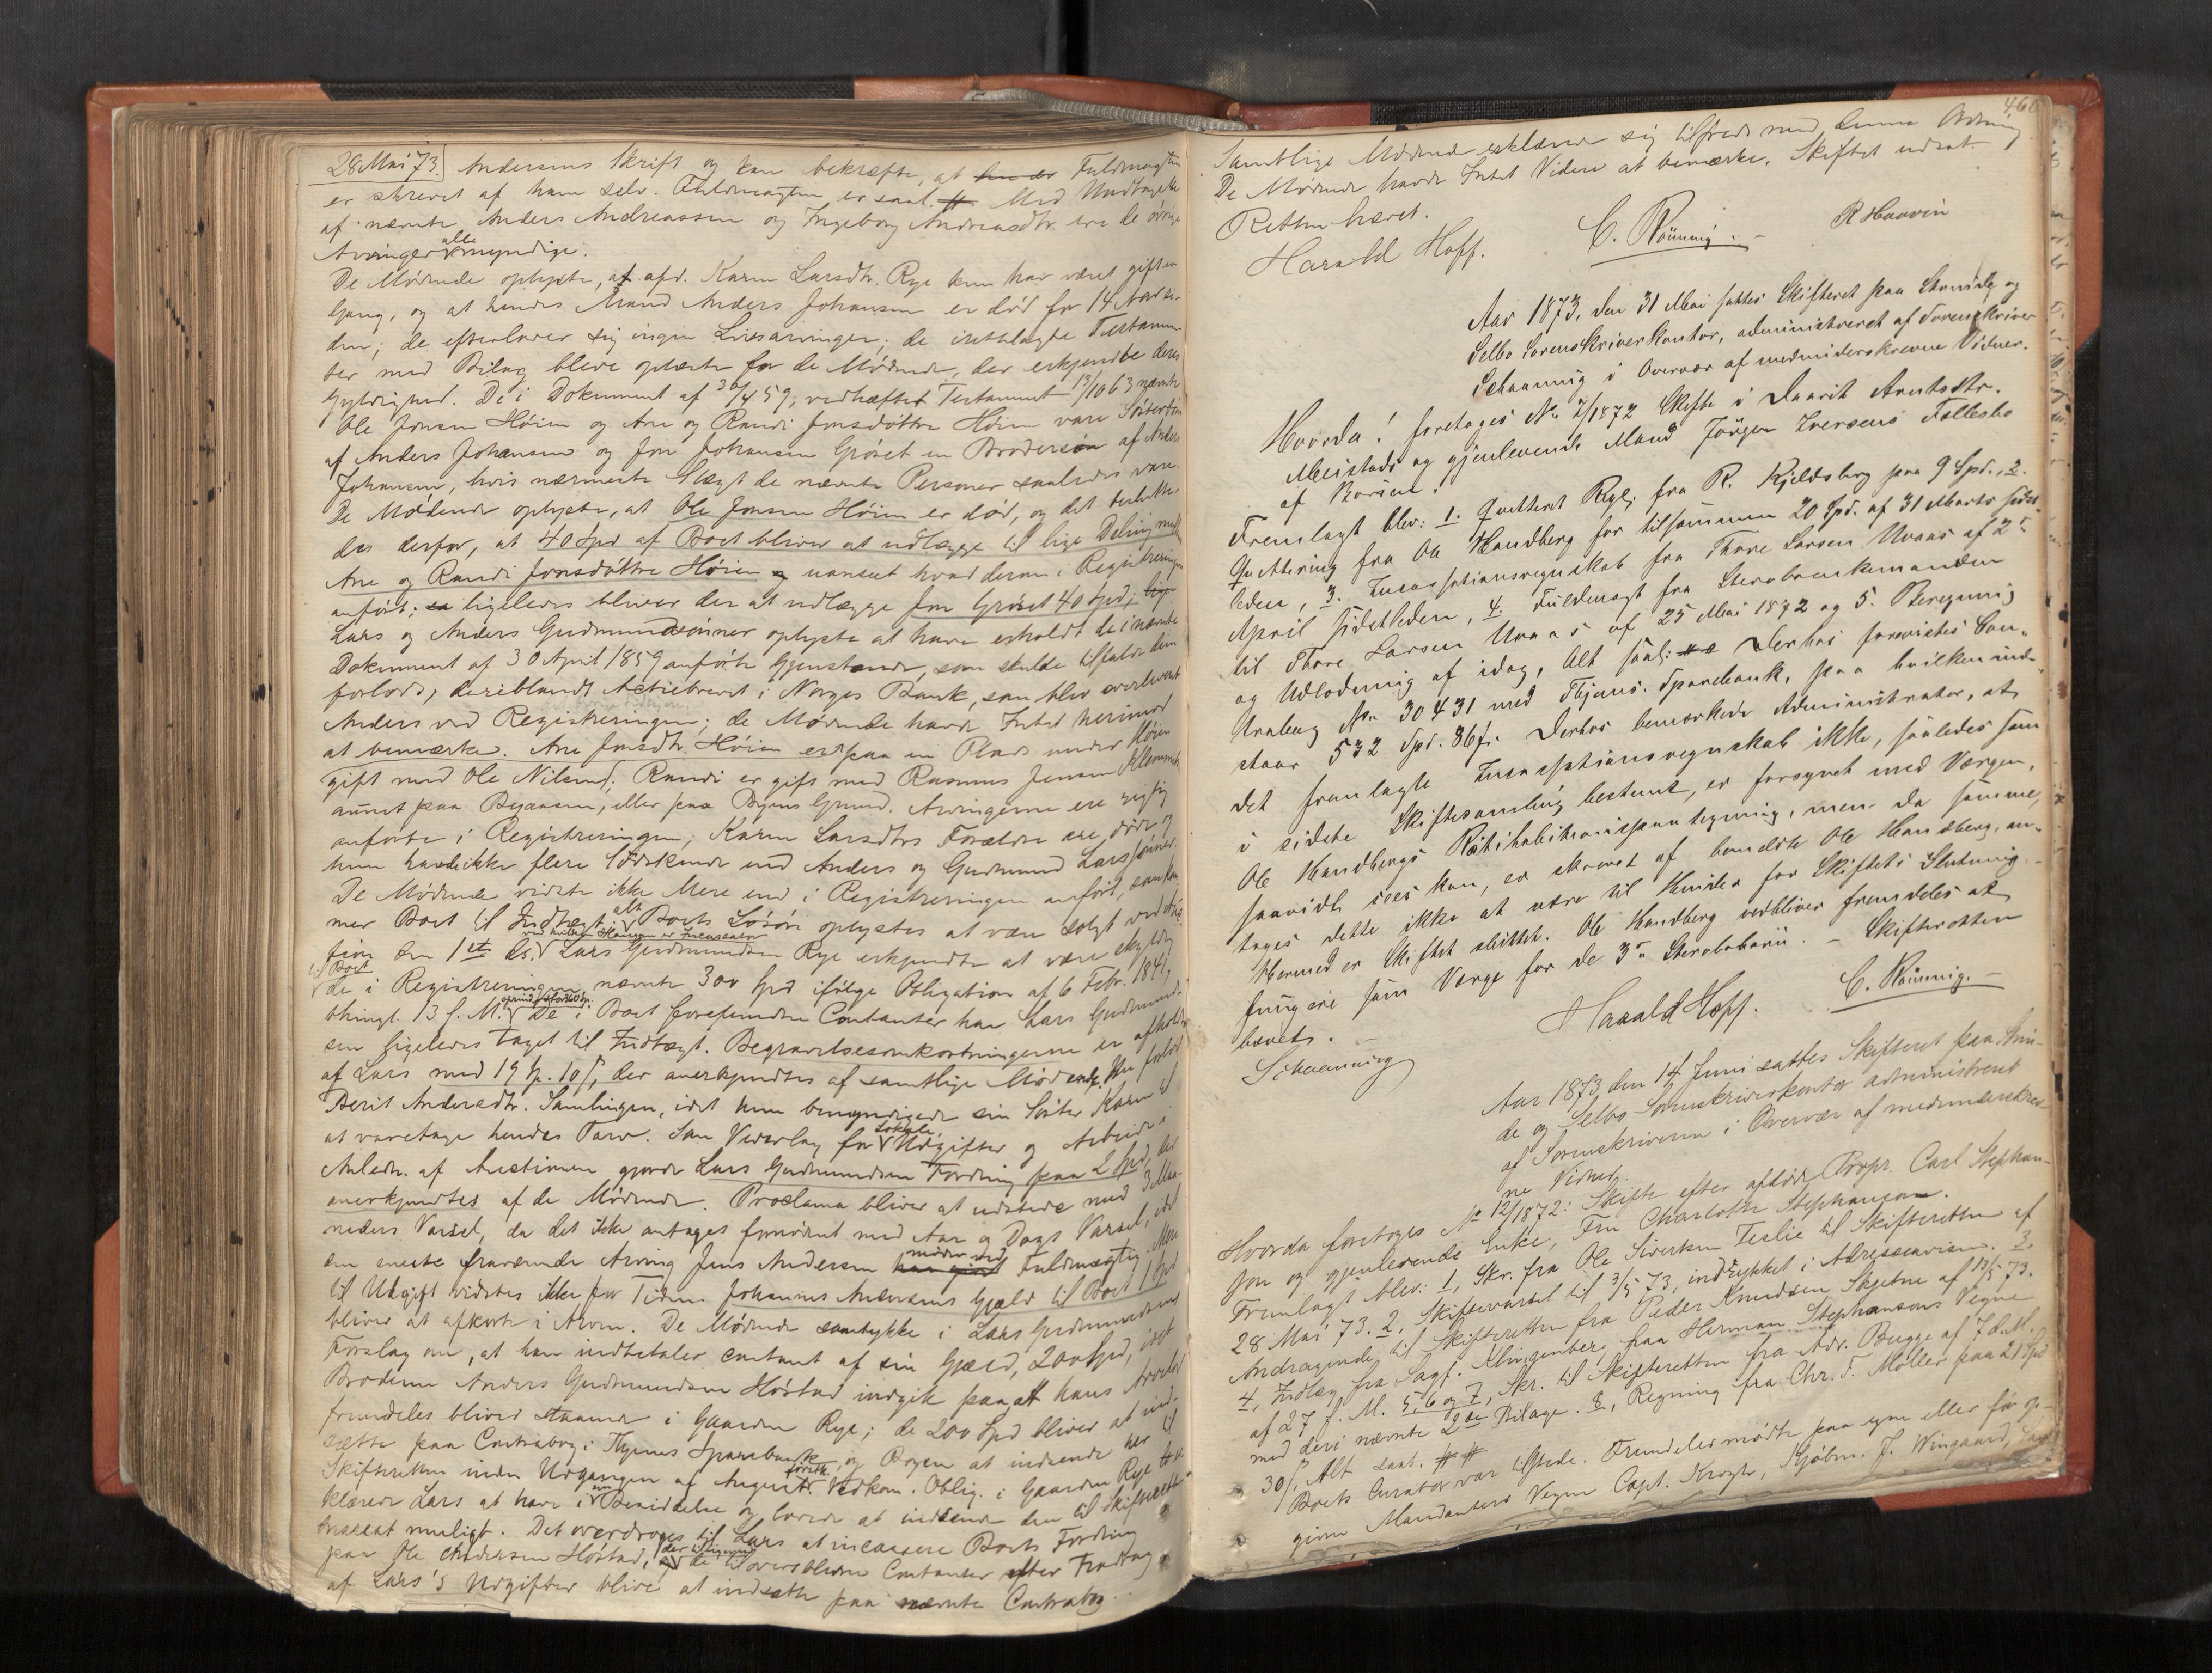 28 Mai 73. Andersens Skrift og kan bekræfte, at hun er Fuldmagten
er skrevet af ham selv. Fuldmagten er saal. # Med Undtagelse
af nævnte Anders Andreassen og Ingeborg Andreasdtr. ere de øvrige
Arvinger alle myndige.
De Mødende oplyste, at afd. Karen Larsdtr. Rye kun har været gift en
Gang, og at hendes Mand Anders Johansen er død for 14 Aar si-
den; de efterlader sig ingen Livsarvinger; de irettelagte Testamen-
ter med Bilag bleve oplæste for de Mødende, der erkjendte deres
Gyldighed. De i Dokument af 30/4 59, vedhæftet Testament 13/10 63 nævnte
Ole Jonsen Høiem og Ane og Randi Jonsdøttre Høiem vare Søsterbørn
af Anders Johansen og Jon Johansen Grøset en Brodersøn af Anders
Johansen, hvis nærmeste Slægt de nævnte Personer saaledes vare.
De Mødende oplyste, at Ole Jonsen Høiem er død, og det besluttes
des derfor, at 40 Spd af Boet bliver at udlægge til lige Deling mellem
Ane og Randi Jonsdøttre Høiem og uanseet hvad derom i Registreringen
anført; sa ligeledes bliver der at udlægge Jon Grøset 40 Spd; lige
Lars og Anders Gudmundsønner oplyste at have erholdt de i nævnte
Dokument af 30 April 1859 anførte Gjenstande, som skulde tilfalde dem
forlods, deriblandt Actiebrevet i Norges Bank, som blev overleveret
Anders ved Registreringen; de Mødende havde Intet herimod
at bemærke. Ane Jonsdtr. Høiem er paa en Plads under Høiem
gift med Ole Nilsen; Randi er gift med Rasmus Jensen Klemmets
aunet paa Byaasen, eller paa Byens Grund. Arvingerne ere rigtig
anførte i Registreringen; Karen Larsdtrs Forældre ere døde og
hun havde ikke flere Sødskende end Anders og Gudmund Larssønner.
De Mødende vidste ikke Mere end i Registreringen anført, som kom
mer Boet til Indtægt; alt Boets Løsøre oplystes at være solgt ved Auk-
tion den 1st ds. ved hvilken Haugan er Incassator Lars Gudmundsen Rye erkjendte at være skyldig
til Boet de i Registreringen nævnte 300 Spd ifølge Obligation af 6 Febr. 1841,
thingl. 13 s. M. De i Boet forefundne Contanter har Lars Gudmund-
sen ligeledes taget til Indtægt. Begravelsesomkostningerne er afholdt
af Lars med 19 Sp. 10 ß, der anerkjendtes af samtlige Mødende. Nu forlod
Berit Andersdtr. Samlingen, idet hun bemyndigede sin Søster Karen til
at varetage hendes Tarv. Som Vederlag for Lokale, Udgifter og Arbeide i
Anledn. af Auctionen gjorde Lars Gudmundsen Fordring paa 2 Spd, der
anerkjendtes af de Mødende. Proclama bliver at udstede med 3 Maa-
neders Varsel, da det ikke antages fornødent med Aar og Dags Varsel, idet
den eneste fraværende Arving Jens Andersen har givet møder ved Fuldmægtig. Mere
til Udgift vidstes ikke for Tiden. Johannes Andersens Gjæld til Boet 1 Spd
bliver at afkorte i Arven. De Mødende samtykke i Lars Gudmundsens
Forslag om, at han indbetaler contant af sin Gjæld, 200 Spd, idet
Broderen Anders Gudmundsen Høstad indgik paa, at hans Arvelod
fremdeles bliver staaende i Gaarden Rye; de 200 Spd bliver at ind-
sætte paa Contrabog i Thjems Sparebank, og Bogen at indsende her til
Skifteretten inden Udgangen af August førstk. Vedkom. Oblig. i Gaarden Rye er-
klærede Lars at have i sin Besiddelse og lovede at indsende den til Skifteretten
snarest muligt. Det overdroges til Lars at incassere Boets Fordring
paa Ole Andersen Høstad, der tilligemed de til overs blevne Contanter efter Fradrag
af Lars's Udgifter bliver at indsætte paa nævnte Contrabog.
460
Samtlige Mødende erklærede sig tilfreds med denne Ordning
De Mødende havde Intet Videre at bemærke. Skiftet udsat.
Retten hævet.
Harald Hoff. C. Rönning. R Haavin
Aar 1873, den 31 Mai sattes Skifteret paa Strinde og
Selbo Sorenskriverkontor, administreret af Sorenskriver
Schaanning i Overvær af medunderskrevne Vidner.
Hvorda! foretoges No 7/1872 Skifte i Daarit Arntsdtr.
Meistads og gjenlevende Mand Jörgen Iversens Fællesbo
af Börsen.
Fremlagt blev: 1. Qvitteret Regl. fra R. Kjeldsberg paa 9 Spd., 2.
Qvittering fra Ole Handberg for tilsammen 20 Spd. af 31 Marts sidst-
leden, 3. Incassationsregnskab fra Thore Larsen Uvaas af 2den
April sidstleden, 4. Fuldmagt fra Sterboenkemanden
til Thore Larsen Uvaas af 25 Mai 1872 og 5. Beregning
og Udlodning af idag, Alt saal. Derhos foreviistes Con-
trabog No 30431 med Thjems. Sparebank, paa hvilken inde-
staar 532 Spd. 86 ß. Derhos bemærkede Administrator, at
det fremlagte Incassationsregnskab ikke, saaledes som
i sidste Skiftesamling bestemt, er forsynet med Værgen,
Ole Handbergs Ratihabitionspaategning, men da samme,
saavidt sees kan, er skrevet af bemeldte Ole Handberg, an-
tages dette ikke at være til Hinder for Skiftets Slutning.
Hermed er Skiftet sluttet. Ole Handberg vedbliver fremdeles at
fungere som Værge for de 3de Sterbobørn. – Skifteretten
hævet. –
Schaanning Harald Hoff. C. Rönning.
Aar 1873 den 14 Juni sattes Skifteret paa Strin-
de og Selbo Sorenskriverkontor administreret
af Sorenskriveren i Overvær af medunderskrev-
ne Vidner.
Hvorda foretoges No 12/1872: Skifte efter afdøde Propr. Carl Stephan-
son og gjenlevende Enke, Fru Charlotte Stephanson.
Fremlagt blev: 1, Skr. fra Ole Sivertsen Leslie til Skifteretten af
28 Mai 73. 2, Skiftevarsel til 3/5 73, indrykket i Adresseavisen. 3,
Andragende til Skifteretten fra Peder Knudsen Skjetne af 13/5 73.
4, Indlæg fra Sagf. Klingenberg paa Herman Stephansons Vegne
af 27 f. M. 5, 6 og 7, Skr. til Skifteretten fra Adv. Bugge af 7 d. M.
med deri nævnte 2de Bilage. 8, Regning fra Chr. F. Møller paa 21 Spd
30 ß, Alt saal. # #
Boets Curator var tilstede. Fremdeles mødte paa egne eller for op-
givne Mandanters Vegne Capt. Krogh, Kjøbm. J. Wingaard,